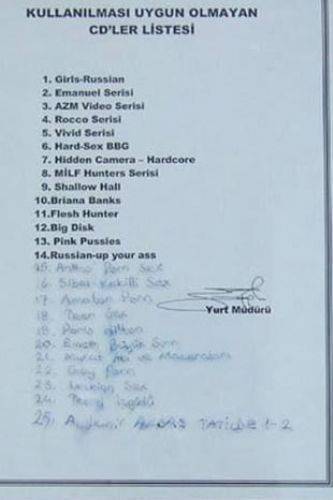 KULLANILMASI UYGUN OLMAYAN
CD'LER LİSTESİ
1. Girls-Russian
2. Emanuel Serisi
3. AZM Video Serisi
4. Rocco Serisi
5. Vivid Serisi
6. Hard-Sex BBG
7. Hidden Camera – Hardcore
8. MİLF Hunters Serisi
9. Shallow Hall
10.Briana Banks
11.Flesh Hunter
12.Big Disk
13. Pink Pussies
14.Russian-up your ass
15. Porn Sex
16. Sibel Kekilli Sex
17. Amatör Porn
Yurt Müdürü
18. Sex
19. Paris Hilton
20. Büyük
21. ve Maceraları
22. Gay Porn
23. Lezbiyen Sex
24.
25. TATİLDE 1-2